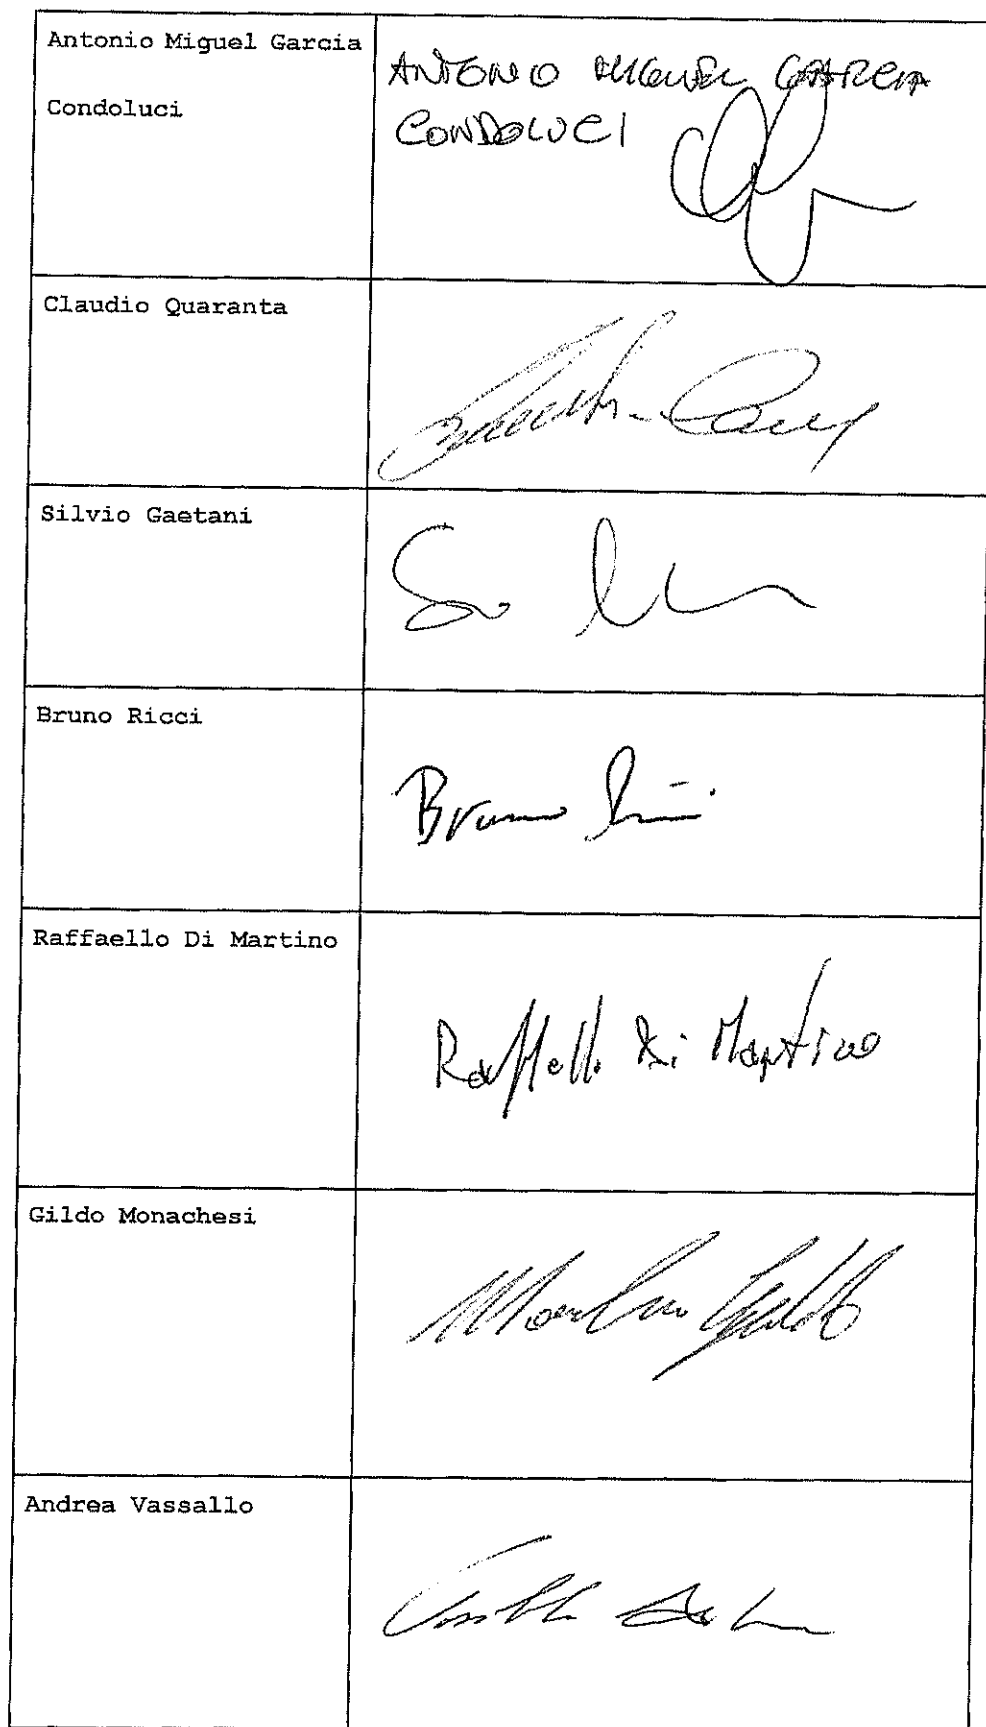 Antonio Miguel Garcia
Condoluci
ANTONIO MIGUEL GARCIA
CONDOLUCI
Claudio Quaranta
Silvio Gaetani
Bruno Ricci
Bruno Ricci
Raffaello Di Martino
Raffaello Di Martino
Gildo Monachesi
Andrea Vassallo